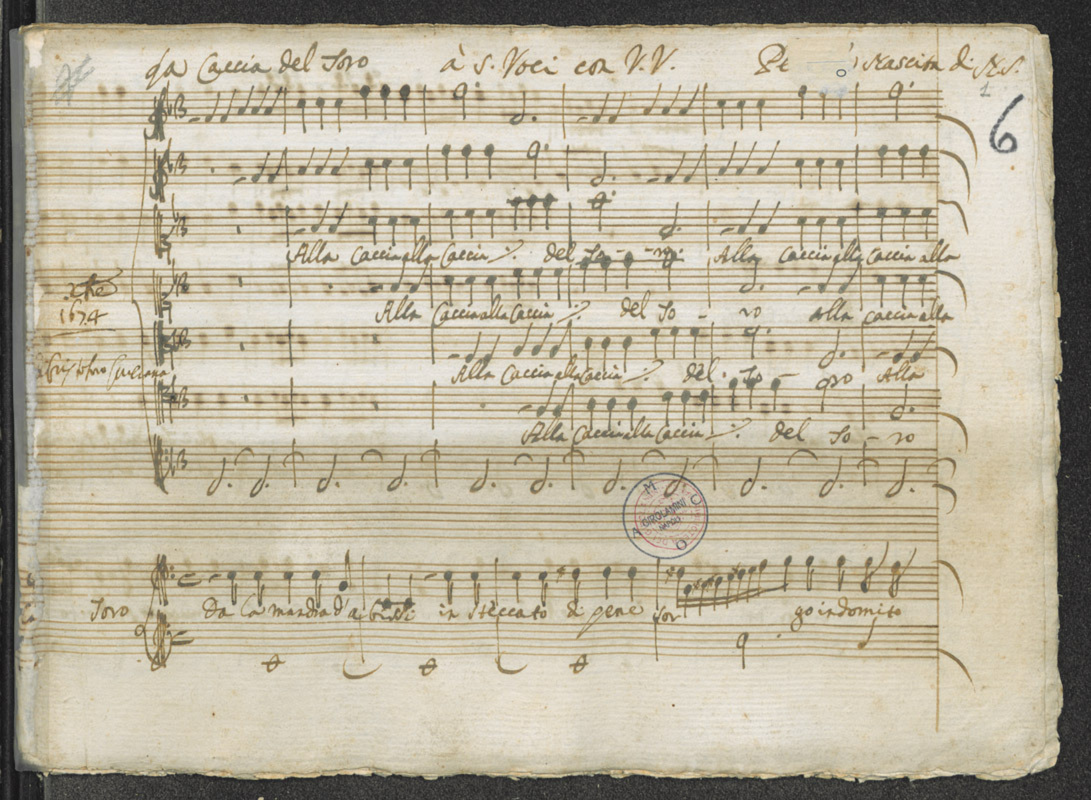 La Caccia del Toro à 5. Voci con V.V. Nascita di N.S.
1
6
Alla Caccia alla Caccia del To - ro. Alla caccia alla caccia alla
Alla Caccia alla Caccia del To - ro alla caccia alla
1674
Alla Caccia alla Caccia del To - ro Alla
Alla Caccia alla Caccia del To - ro
GIROLAMINI
Toro Da la mandra d'abissi in steccato di pene sor go indomito